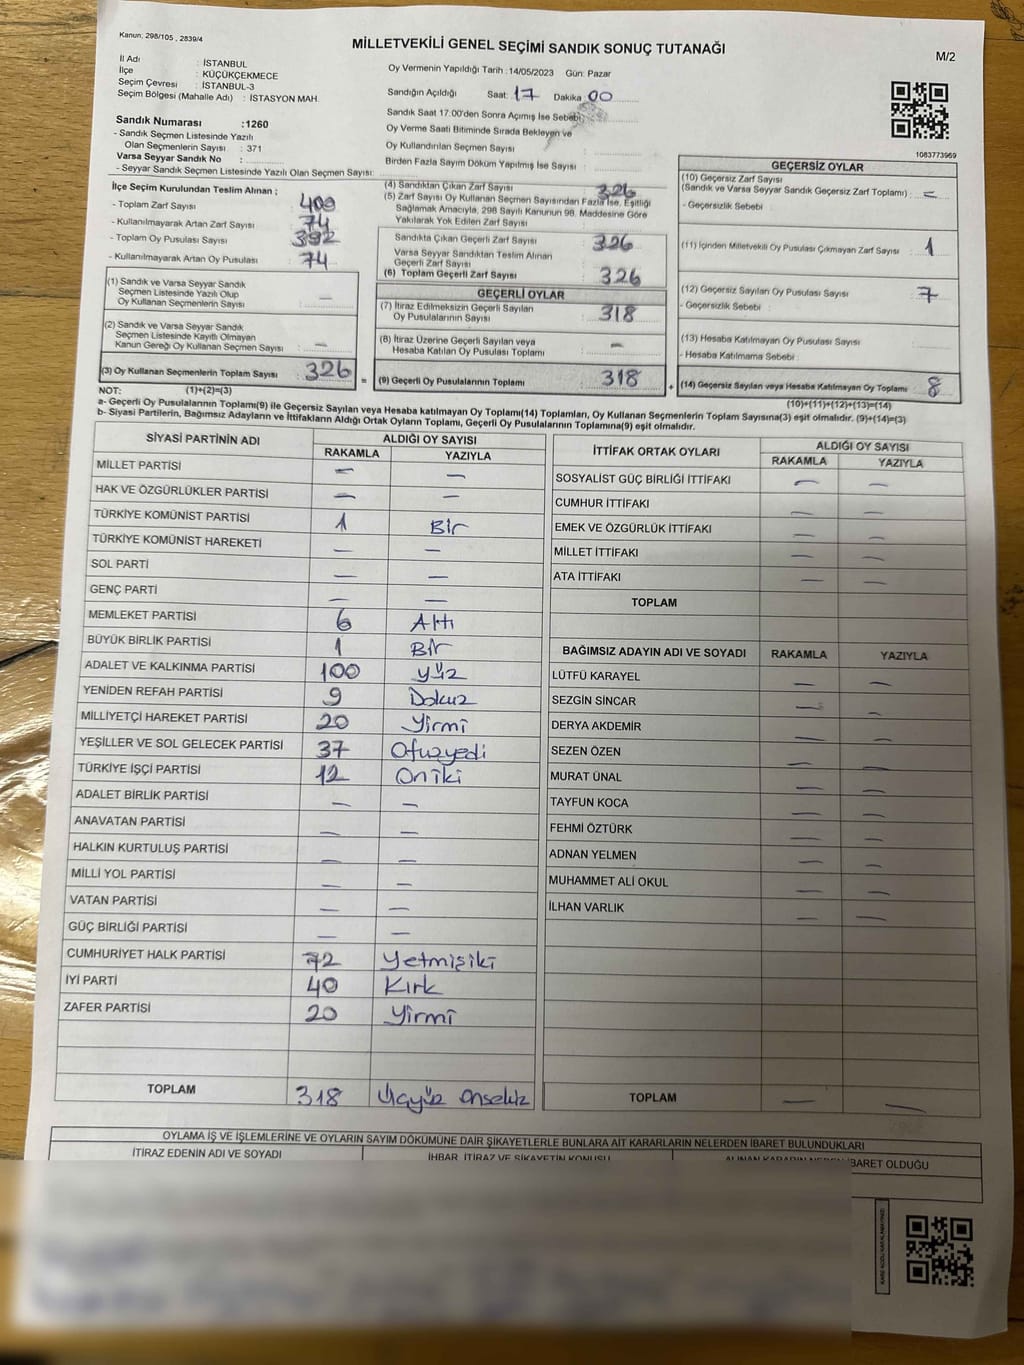 Kanun: 298/105 , 2839/4
MİLLETVEKİLİ GENEL SEÇİMİ SANDIK SONUÇ TUTANAĞI
M/2
İl Adı : İSTANBUL
İlçe : KÜÇÜKÇEKMECE
Seçim Çevresi : İSTANBUL-3
Seçim Bölgesi (Mahalle Adı) : İSTASYON MAH.
Sandık Numarası :1260
- Sandık Seçmen Listesinde Yazılı
Olan Seçmenlerin Sayısı : 371
Varsa Seyyar Sandık No :
- Seyyar Sandık Seçmen Listesinde Yazılı Olan Seçmen Sayısı:
Oy Vermenin Yapıldığı Tarih :14/05/2023 Gün: Pazar
Sandığın Açıldığı Saat: 17 Dakika 00
Sandık Saat 17:00'den Sonra Açılmış İse Sebebi:
Oy Verme Saati Bitiminde Sırada Bekleyen ve
Oy Kullandırılan Seçmen Sayısı :
Birden Fazla Sayım Döküm Yapılmış İse Sayısı :
1083773969
İlçe Seçim Kurulundan Teslim Alınan ;
- Toplam Zarf Sayısı : 400
- Kullanılmayarak Artan Zarf Sayısı : 74
- Toplam Oy Pusulası Sayısı : 392
- Kullanılmayarak Artan Oy Pusulası : 74
(1) Sandık ve Varsa Seyyar Sandık
Seçmen Listesinde Yazılı Olup
Oy Kullanan Seçmenlerin Sayısı : —
(2) Sandık ve Varsa Seyyar Sandık
Seçmen Listesinde Kayıtlı Olmayan
Kanun Gereği Oy Kullanan Seçmen Sayısı : —
(3) Oy Kullanan Seçmenlerin Toplam Sayısı : 326
(4) Sandıktan Çıkan Zarf Sayısı : 326
(5) Zarf Sayısı Oy Kullanan Seçmen Sayısından Fazla İse, Eşitliği
Sağlamak Amacıyla, 298 Sayılı Kanunun 98. Maddesine Göre
Yakılarak Yok Edilen Zarf Sayısı :
Sandıkta Çıkan Geçerli Zarf Sayısı : 326
Varsa Seyyar Sandıktan Teslim Alınan
Geçerli Zarf Sayısı :
(6) Toplam Geçerli Zarf Sayısı : 326
GEÇERLİ OYLAR
(7) İtiraz Edilmeksizin Geçerli Sayılan
Oy Pusulalarının Sayısı : 318
(8) İtiraz Üzerine Geçerli Sayılan veya
Hesaba Katılan Oy Pusulası Toplamı : —
= (9) Geçerli Oy Pusulalarının Toplamı : 318
GEÇERSİZ OYLAR
(10) Geçersiz Zarf Sayısı
(Sandık ve Varsa Seyyar Sandık Geçersiz Zarf Toplamı) : —
- Geçersizlik Sebebi :
(11) İçinden Milletvekili Oy Pusulası Çıkmayan Zarf Sayısı : 1
(12) Geçersiz Sayılan Oy Pusulası Sayısı : 7
- Geçersizlik Sebebi :
(13) Hesaba Katılmayan Oy Pusulası Sayısı :
- Hesaba Katılmama Sebebi :
+ (14) Geçersiz Sayılan veya Hesaba Katılmayan Oy Toplamı : 8
NOT: (1)+(2)=(3) (10)+(11)+(12)+(13)=(14)
a- Geçerli Oy Pusulalarının Toplamı(9) ile Geçersiz Sayılan veya Hesaba katılmayan Oy Toplamı(14) Toplamları, Oy Kullanan Seçmenlerin Toplam Sayısına(3) eşit olmalıdır. (9)+(14)=(3)
b- Siyasi Partilerin, Bağımsız Adayların ve İttifakların Aldığı Ortak Oyların Toplamı, Geçerli Oy Pusulalarının Toplamına(9) eşit olmalıdır.
SİYASİ PARTİNİN ADI ALDIĞI OY SAYISI
RAKAMLA YAZIYLA
MİLLET PARTİSİ — —
HAK VE ÖZGÜRLÜKLER PARTİSİ — —
TÜRKİYE KOMÜNİST PARTİSİ 1 Bir
TÜRKİYE KOMÜNİST HAREKETİ — —
SOL PARTİ — —
GENÇ PARTİ — —
MEMLEKET PARTİSİ 6 Altı
BÜYÜK BİRLİK PARTİSİ 1 Bir
ADALET VE KALKINMA PARTİSİ 100 Yüz
YENİDEN REFAH PARTİSİ 9 Dokuz
MİLLİYETÇİ HAREKET PARTİSİ 20 Yirmi
YEŞİLLER VE SOL GELECEK PARTİSİ 37 Otuzyedi
TÜRKİYE İŞÇİ PARTİSİ 12 Oniki
ADALET BİRLİK PARTİSİ — —
ANAVATAN PARTİSİ — —
HALKIN KURTULUŞ PARTİSİ — —
MİLLİ YOL PARTİSİ — —
VATAN PARTİSİ — —
GÜÇ BİRLİĞİ PARTİSİ — —
CUMHURİYET HALK PARTİSİ 72 Yetmişiki
İYİ PARTİ 40 Kırk
ZAFER PARTİSİ 20 Yirmi
TOPLAM 318 Üçyüz Onsekiz
İTTİFAK ORTAK OYLARI ALDIĞI OY SAYISI
RAKAMLA YAZIYLA
SOSYALİST GÜÇ BİRLİĞİ İTTİFAKI — —
CUMHUR İTTİFAKI — —
EMEK VE ÖZGÜRLÜK İTTİFAKI — —
MİLLET İTTİFAKI — —
ATA İTTİFAKI — —
TOPLAM
BAĞIMSIZ ADAYIN ADI VE SOYADI RAKAMLA YAZIYLA
LÜTFÜ KARAYEL — —
SEZGİN SİNCAR — —
DERYA AKDEMİR — —
SEZEN ÖZEN — —
MURAT ÜNAL — —
TAYFUN KOCA — —
FEHMİ ÖZTÜRK — —
ADNAN YELMEN — —
MUHAMMET ALİ OKUL — —
İLHAN VARLIK — —
TOPLAM — —
OYLAMA İŞ VE İŞLEMLERİNE VE OYLARIN SAYIM DÖKÜMÜNE DAİR ŞİKAYETLERLE BUNLARA AİT KARARLARIN NELERDEN İBARET BULUNDUKLARI
İTİRAZ EDENİN ADI VE SOYADI İHBAR, İTİRAZ VE ŞİKAYETİN KONUSU ALINAN KARARIN NEDEN İBARET OLDUĞU